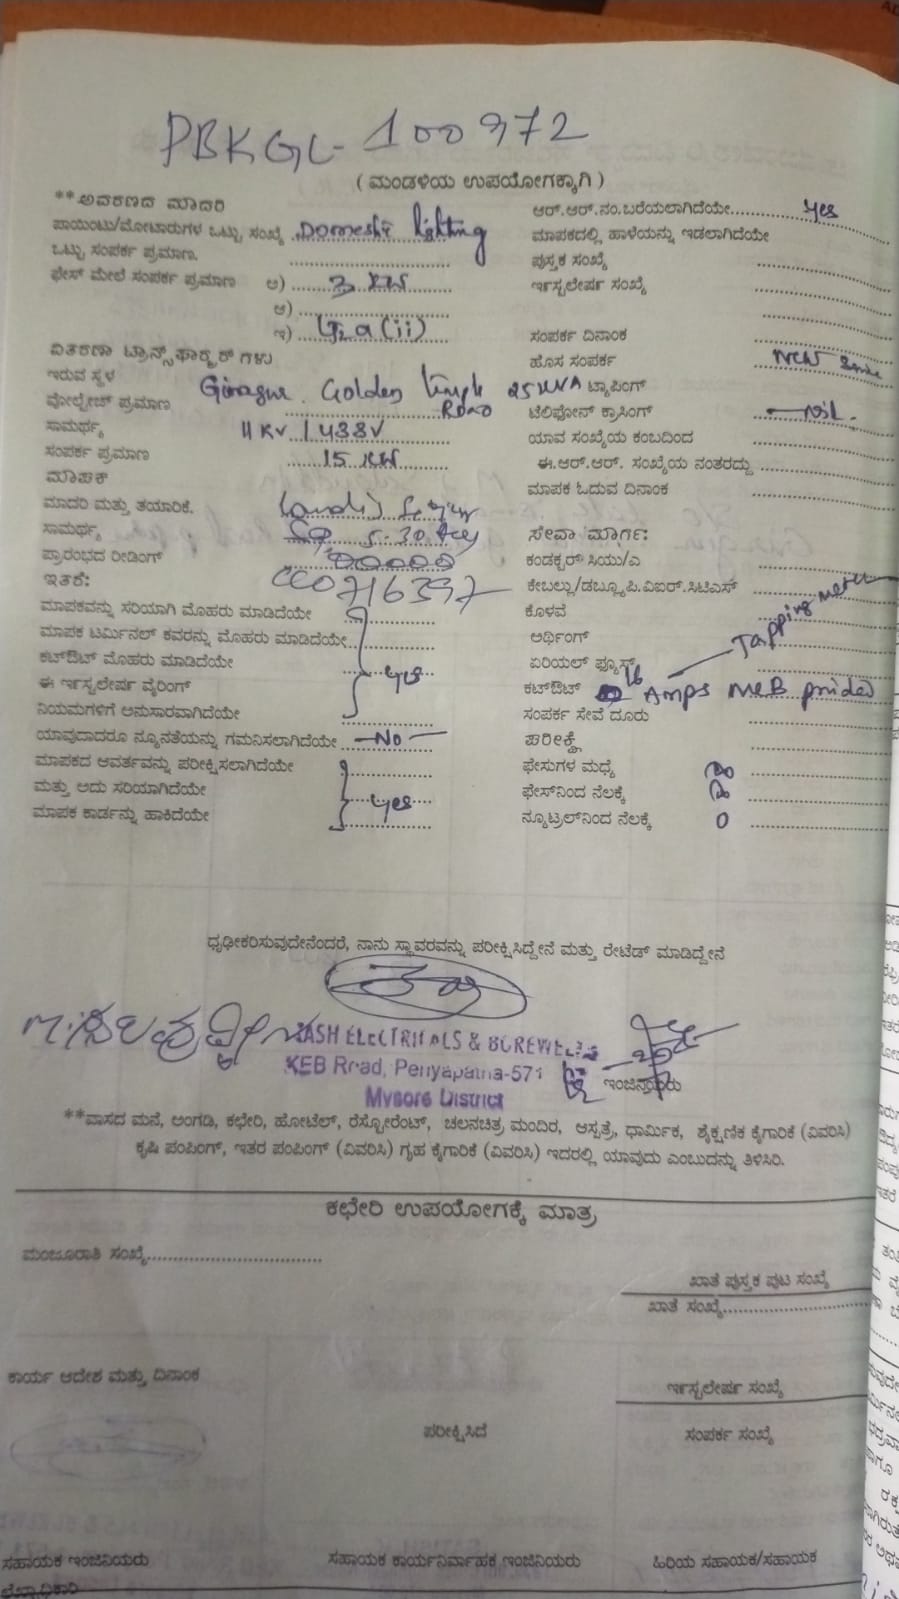 PBKGL-100972
( ಮಂಡಳಿಯ ಉಪಯೋಗಕ್ಕಾಗಿ )
**ಆವರಣದ ಮಾದರಿ
ಪಾಯಿಂಟು/ಮೋಟಾರುಗಳ ಒಟ್ಟು ಸಂಖ್ಯೆ Domestic lighting
ಒಟ್ಟು ಸಂಪರ್ಕ ಪ್ರಮಾಣ.
ಫೇಸ್ ಮೇಲೆ ಸಂಪರ್ಕ ಪ್ರಮಾಣ ಅ) 3 KW
ಆ)
ಇ) a(ii)
ವಿತರಣಾ ಟ್ರಾನ್ಸ್‌ಫಾರ್ಮರ್‌ಗಳು
ಇರುವ ಸ್ಥಳ Golden Temple Road 25 KVA
ವೋಲ್ಟೇಜ್ ಪ್ರಮಾಣ
ಸಾಮರ್ಥ್ಯ 11 KV / 433V
ಸಂಪರ್ಕ ಪ್ರಮಾಣ 15 KW
ಮಾಪಕ
ಮಾದರಿ ಮತ್ತು ತಯಾರಿಕೆ.
ಸಾಮರ್ಥ್ಯ 5-30
ಪ್ರಾರಂಭದ ರೀಡಿಂಗ್ 00000
ಇತರೆ: 0716397
ಮಾಪಕವನ್ನು ಸರಿಯಾಗಿ ಮೊಹರು ಮಾಡಿದೆಯೇ
ಮಾಪಕ ಟರ್ಮಿನಲ್ ಕವರನ್ನು ಮೊಹರು ಮಾಡಿದೆಯೇ
ಕಟ್‌ಔಟ್ ಮೊಹರು ಮಾಡಿದೆಯೇ yes
ಈ ಇನ್‌ಸ್ಟಲೇಷನ್ ವೈರಿಂಗ್
ನಿಯಮಗಳಿಗೆ ಅನುಸಾರವಾಗಿದೆಯೇ
ಯಾವುದಾದರೂ ನ್ಯೂನತೆಯನ್ನು ಗಮನಿಸಲಾಗಿದೆಯೇ No
ಮಾಪಕದ ಆವರ್ತವನ್ನು ಪರೀಕ್ಷಿಸಲಾಗಿದೆಯೇ
ಮತ್ತು ಅದು ಸರಿಯಾಗಿದೆಯೇ yes
ಮಾಪಕ ಕಾರ್ಡನ್ನು ಹಾಕಿದೆಯೇ
ಆರ್.ಆರ್.ನಂ.ಬರೆಯಲಾಗಿದೆಯೇ yes
ಮಾಪಕದಲ್ಲಿ ಹಾಳೆಯನ್ನು ಇಡಲಾಗಿದೆಯೇ
ಪುಸ್ತಕ ಸಂಖ್ಯೆ
ಇನ್‌ಸ್ಟಲೇಷನ್ ಸಂಖ್ಯೆ
ಸಂಪರ್ಕ ದಿನಾಂಕ
ಹೊಸ ಸಂಪರ್ಕ New
ಟ್ಯಾಪಿಂಗ್
ಟೆಲಿಫೋನ್ ಕ್ರಾಸಿಂಗ್ Nil
ಯಾವ ಸಂಖ್ಯೆಯ ಕಂಬದಿಂದ
ಈ.ಆರ್.ಆರ್. ಸಂಖ್ಯೆಯ ನಂತರದ್ದು
ಮಾಪಕ ಓದುವ ದಿನಾಂಕ
ಸೇವಾ ಮಾರ್ಗ:
ಕಂಡಕ್ಟರ್ ಸಿಯು/ಎ
ಕೇಬಲ್ಲು/ಡಬ್ಲೂ.ಪಿ.ವಿಐರ್.ಸಿಟಿಎಸ್
ಕೊಳವೆ Tapping meter
ಅರ್ಥಿಂಗ್
ಏರಿಯಲ್ ಫ್ಯೂಸ್
ಕಟ್‌ಔಟ್ 16 Amps MCB
ಸಂಪರ್ಕ ಸೇವೆ ದೂರು
ಪರೀಕ್ಷೆ
ಫೇಸುಗಳ ಮಧ್ಯೆ
ಫೇಸ್‌ನಿಂದ ನೆಲಕ್ಕೆ
ನ್ಯೂಟ್ರಲ್‌ನಿಂದ ನೆಲಕ್ಕೆ 0
ಧೃಢೀಕರಿಸುವುದೇನೆಂದರೆ, ನಾನು ಸ್ಥಾವರವನ್ನು ಪರೀಕ್ಷಿಸಿದ್ದೇನೆ ಮತ್ತು ರೇಟೆಡ್ ಮಾಡಿದ್ದೇನೆ
ASH ELECTRICALS & BOREWELLS
KEB Road, Periyapatna-571
Mysore District
ಇಂಜಿನಿಯರು
**ವಾಸದ ಮನೆ, ಅಂಗಡಿ, ಕಛೇರಿ, ಹೋಟೆಲ್, ರೆಸ್ಟೋರೆಂಟ್, ಚಲನಚಿತ್ರ ಮಂದಿರ, ಆಸ್ಪತ್ರೆ, ಧಾರ್ಮಿಕ, ಶೈಕ್ಷಣಿಕ ಕೈಗಾರಿಕೆ (ವಿವರಿಸಿ)
ಕೃಷಿ ಪಂಪಿಂಗ್, ಇತರ ಪಂಪಿಂಗ್ (ವಿವರಿಸಿ) ಗೃಹ ಕೈಗಾರಿಕೆ (ವಿವರಿಸಿ) ಇದರಲ್ಲಿ ಯಾವುದು ಎಂಬುದನ್ನು ತಿಳಿಸಿರಿ.
ಕಛೇರಿ ಉಪಯೋಗಕ್ಕೆ ಮಾತ್ರ
ಮಂಜೂರಾತಿ ಸಂಖ್ಯೆ
ಖಾತೆ ಪುಸ್ತಕ ಪುಟ ಸಂಖ್ಯೆ
ಖಾತೆ ಸಂಖ್ಯೆ
ಕಾರ್ಯ ಆದೇಶ ಮತ್ತು ದಿನಾಂಕ
ಇನ್‌ಸ್ಟಲೇಷನ್ ಸಂಖ್ಯೆ
ಪರೀಕ್ಷಿಸಿದೆ
ಸಂಪರ್ಕ ಸಂಖ್ಯೆ
ಸಹಾಯಕ ಇಂಜಿನಿಯರು
ಸಹಾಯಕ ಕಾರ್ಯನಿರ್ವಾಹಕ ಇಂಜಿನಿಯರು
ಹಿರಿಯ ಸಹಾಯಕ/ಸಹಾಯಕ